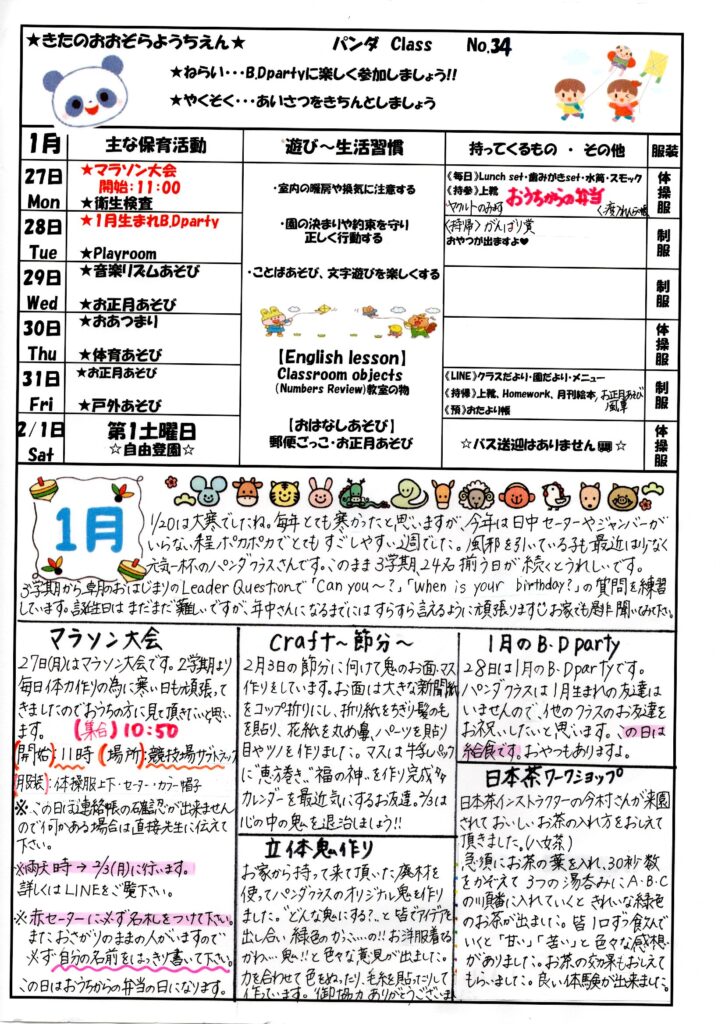 ★きたのおおぞらようちえん★ パンダ Class No.34
★ねらい・・・B.Dpartyに楽しく参加しましょう!!
★やくそく・・・あいさつをきちんとしましょう
1月 主な保育活動 遊び～生活習慣 持ってくるもの ・ その他 服装
27日 Mon
★マラソン大会
開始：11:00
★衛生検査
《毎日》Lunch set・歯みがきset・水筒・スモック
《持参》上靴 おうちからのお弁当
ヤクルトのみます
体操服
28日 Tue
★1月生まれB,Dparty
★Playroom
〈持帰〉がんばり賞
おやつが出ますよ♥
制服
29日 Wed
★音楽リズムあそび
★お正月あそび
制服
30日 Thu
★おあつまり
★体育あそび
体操服
31日 Fri
★お正月あそび
★戸外あそび
《LINE》クラスだより・園だより・メニュー
《持帰》上靴、Homework、月刊絵本、お正月あそび
《預》おたより帳
制服
2/1日 Sat
第1土曜日
☆自由登園☆
☆バス送迎はありません☆
体操服
・室内の暖房や換気に注意する
・園の決まりや約束を守り
正しく行動する
・ことばあそび、文字遊びを楽しくする
【English lesson】
Classroom objects
(Numbers Review)教室の物
【おはなしあそび】
郵便ごっこ・お正月あそび
1月
1/20は大寒でしたね。毎年とても寒かったと思いますが、今年は日中セーターやジャンバーが
いらない程ポカポカでとてもすごしやすい2週でした。風邪を引いている子も最近は少なく
元気一杯のパンダクラスさんです。このまま3学期、24名揃う日が続くとうれしいです。
3学期から朝のおはじまりのLeader Questionで「Can you～?」「When is your birthday?」の質問を練習
しています。誕生日はまだまだ難しいですが、年中さんになるまでにはすらすら言えるように頑張ります☺お家でも是非聞いてみて下さい。
マラソン大会
27日(月)はマラソン大会です。2学期より
毎日体力作りの為に寒い日も頑張って
きましたのでおうちの方に見て頂きたいと思い
ます。 (集合) 10:50
(開始) 11時 (場所) 競技場サブトラック
(服装)：体操服上下・セーター・カラー帽子
※この日は連絡帳の確認が出来ません
ので何かある場合は直接先生に伝えて
下さい。
※雨天時→2/3(月)に行います。
詳しくはLINEをご覧下さい。
※赤セーターに必ず名札をつけて下さい。
またおさがりのままの人がいますので
必ず自分の名前をはっきり書いて下さい。
この日はおうちからのお弁当の日になります。
Craft～節分～
2月3日の節分に向けて鬼のお面、マス
作りをしています。お面は大きな新聞紙
をコップ折りにし、折り紙をちぎり髪の毛
を貼り、花紙を丸め鼻、パーツを貼り
目やツノを作りました。マスは牛乳パック
に"恵方巻き""福の神"を作り完成
カレンダーを最近気にするお友達。2/3は
心の中の鬼を退治しましょう!!
立体鬼作り
お家から持って来て頂いた廃材を
使ってパンダクラスのオリジナル鬼を作り
ました。"どんな鬼にする?"と皆でアイデアを
出し合い 緑色のかっこいいの!! お洋服着てる
かわいい鬼!! と色々な意見が出ました。
力を合わせて色をぬったり、毛糸を貼ったりして
作っています。御協力ありがとうございます
1月のB.D party
28日は1月のB.D partyです。
パンダクラスは1月生まれの友達は
いませんので、他のクラスのお友達を
お祝いしたいと思います。この日は
給食です。おやつもありますよ。
日本茶ワークショップ
日本茶インストラクターの今村さんが来園
されておいしいお茶の入れ方をおしえて
頂きました。(八女茶)
急須にお茶の葉を入れ、30秒数
をかぞえて3つの湯呑みにA・B・C
の順番に入れていくときれいな緑色
のお茶が出ました。皆1口ずつ飲んで
いくと「甘い」「苦い」と色々な感想
がありました。お茶の効果もおしえて
もらいました。良い体験が出来ました。